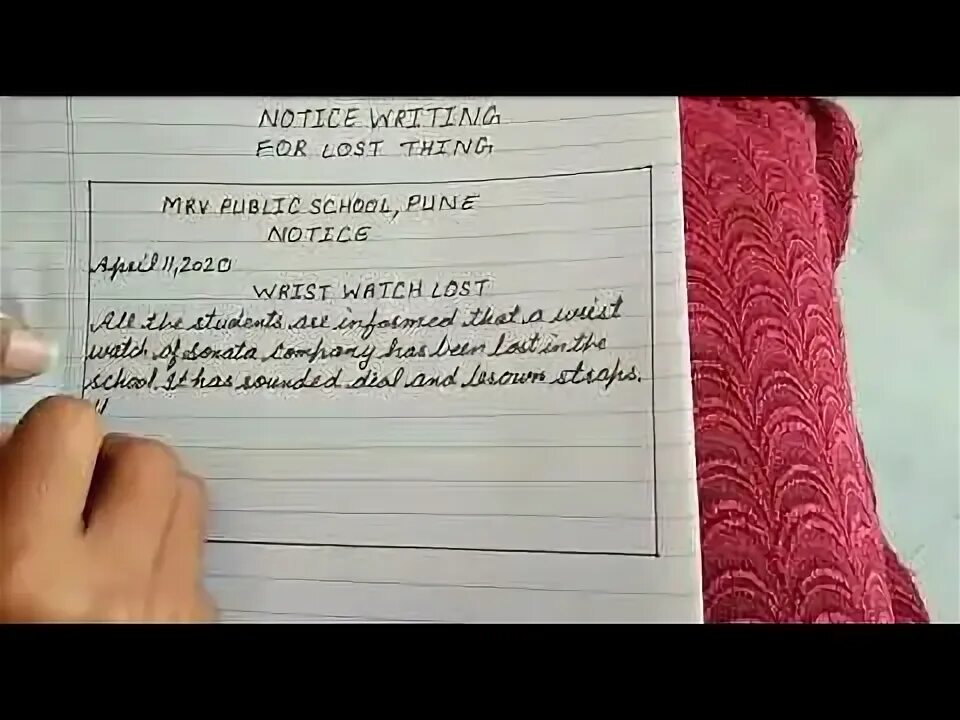 NOTICE WRITING
FOR LOST THING
MRV PUBLIC SCHOOL, PUNE
NOTICE
April 11, 2020
WRIST WATCH LOST
All the students are informed that a wrist
watch of Sonata Company has been lost in the
school. It has rounded dial and brown straps.